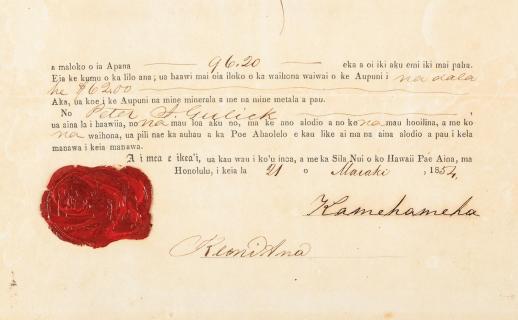 a maloko o ia Apana 96.20 eka a oi iki aku emi iki mai paha.
Eia ke kumu o ka lilo ana; ua haawi mai oia iloko o ka waihona waiwai o ke Aupuni i na dala
he $62.00
Aka, ua koe i ke Aupuni na mine minerala a me na mine metala a pau.
No Peter J. Gulick,
ua aina la i haawiia, no na mau loa aku no, ma ke ano alodio a no ko na mau hooilina, a me ko
na waihona, ua pili nae ka auhau a ka Poe Ahaolelo e kau like ai ma na aina alodio a pau i kela
manawa i keia manawa.
A i mea e ikea'i, ua kau wau i ko'u inoa, a me ka Sila Nui o ko Hawaii Pae Aina, ma
Honolulu, i keia la 21 o Maraki, 1854,
Kamehameha
Keoni Ana